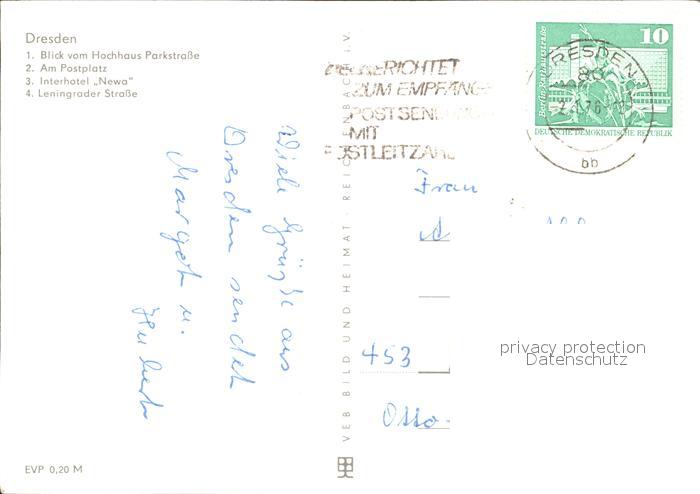 Dresden
1. Blick vom Hochhaus Parkstraße
2. Am Postplatz
3. Interhotel „Newa"
4. Leningrader Straße
Viele Grüße aus
Dresden sendet
Margot u.
Hubert
EVP 0,20 M
VEB BILD UND HEIMAT · REICHENBACH i. V.
ZUM EMPFANG
MIT
10
Berlin, Rathausstraße
DEUTSCHE DEMOKRATISCHE REPUBLIK
DRESDEN
bb
Frau
453
privacy protection
Datenschutz